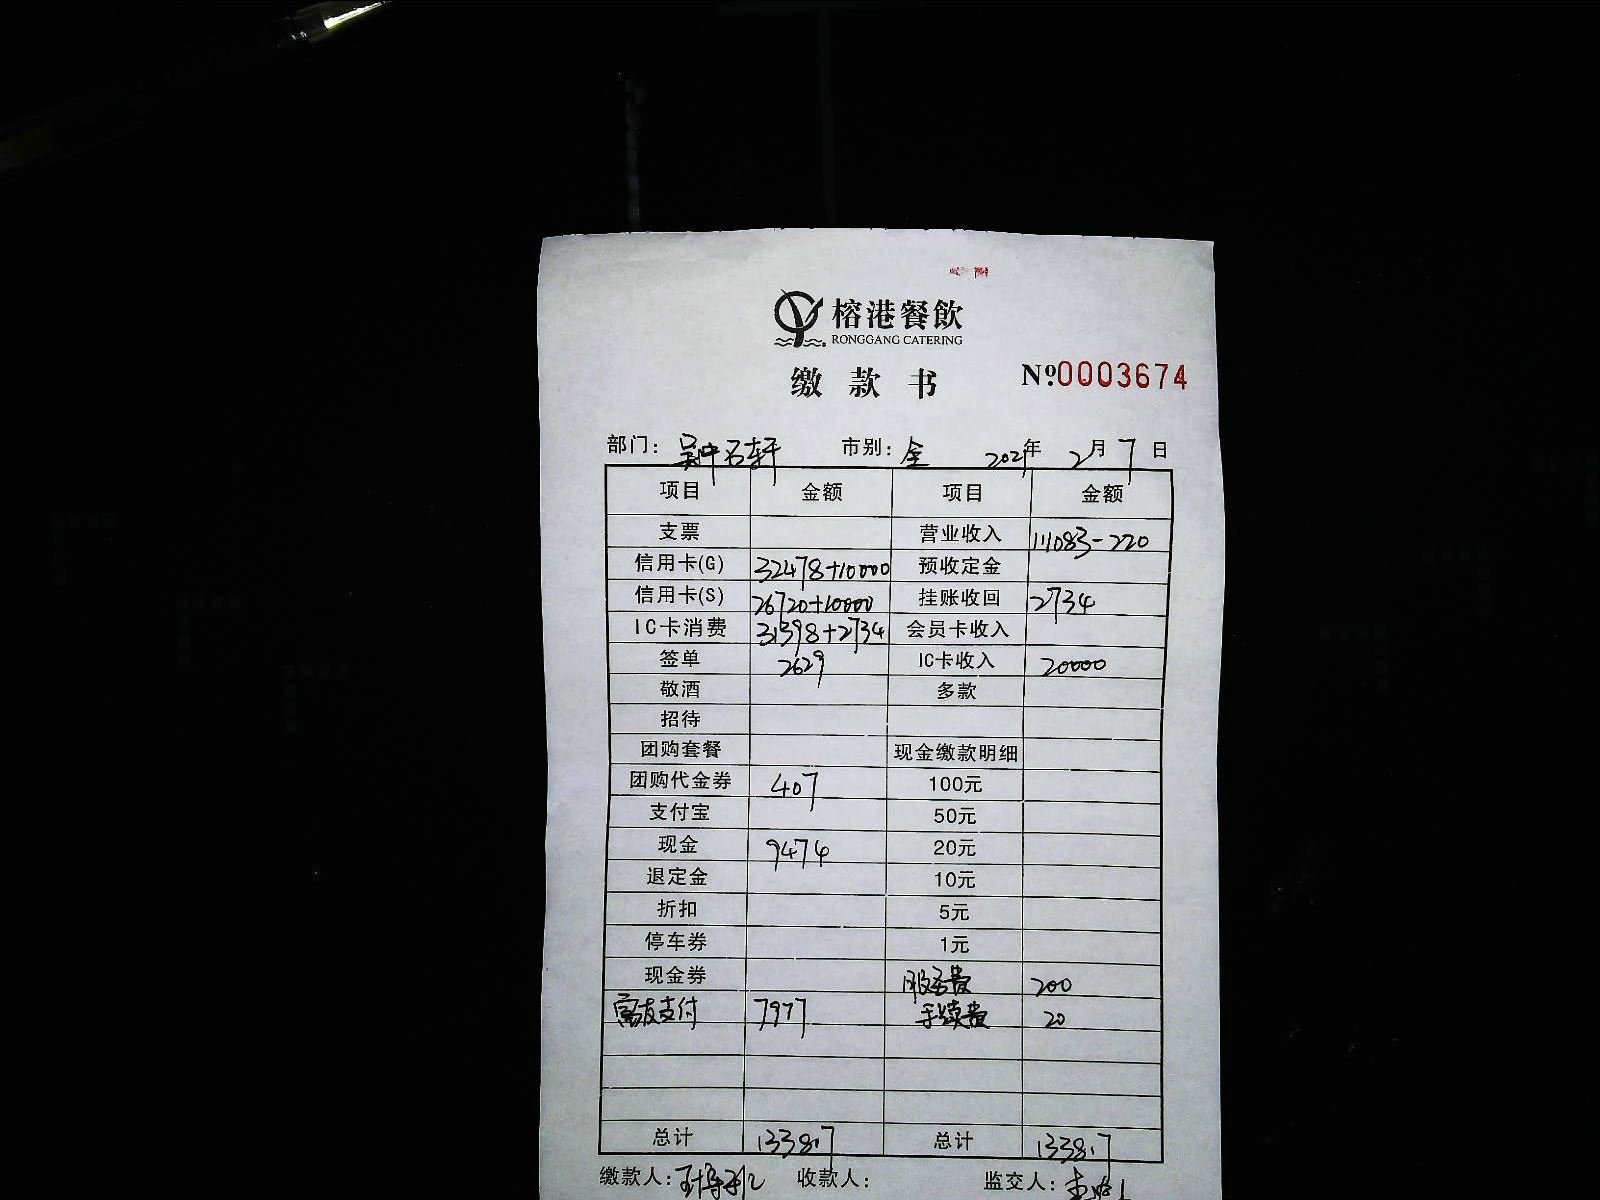 榕港餐飲
RONGGANG CATERING
缴款书 №0003674
部门: 吴中石轩 市别: 全 2021年 2月 7日
项目 金额 项目 金额
支票 营业收入 111083-220
信用卡(G) 32478+10000 预收定金
信用卡(S) 26720+10000 挂账收回 2734
IC卡消费 31398+2734 会员卡收入
签单 2629 IC卡收入 20000
敬酒 多款
招待
团购套餐 现金缴款明细
团购代金券 407 100元
支付宝 50元
现金 9474 20元
退定金 10元
折扣 5元
停车券 1元
现金券 服务费 200
富友支付 7977 手续费 20
总计 133817 总计 133817
缴款人: 收款人: 监交人: